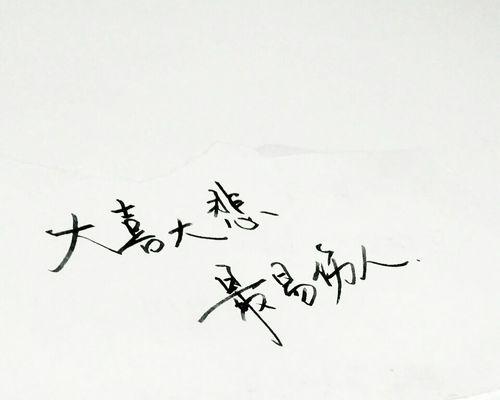 大喜大悲
最易伤人.